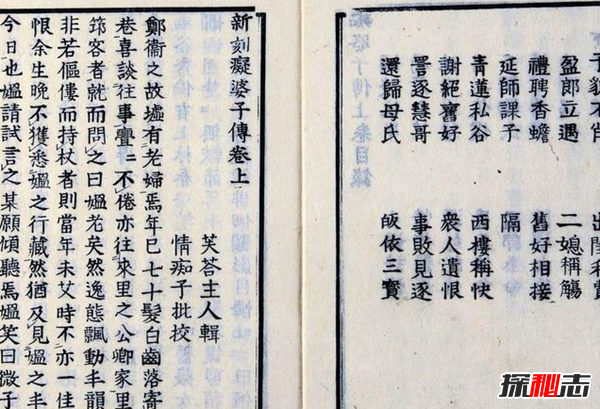 盈郎立遇　二媳稱觴
禮聘香蟾　舊好相接
延師課子　隔
青蓮私谷　西樓稱快
謝絕舊好　衆人遺恨
詈逐慧哥　事敗見逐
還歸母氏　皈依三寳
新刻癡婆子傳卷上
芙蓉主人輯
情痴子批挍
鄭衞之故墟有老婦焉年已七十髮白齒落寄
巷喜談徃事亹〻不倦亦往來里之公卿家里
筇客者就而問之曰媼老矣然逸態飄動丰韻
非若傴僂而持杖者則當年未艾時不亦一佳
恨余生晚不獲悉媼之行藏然猶及見媼之丰
今日也媼請試言之某願傾聽焉媼笑曰微子
探秘志